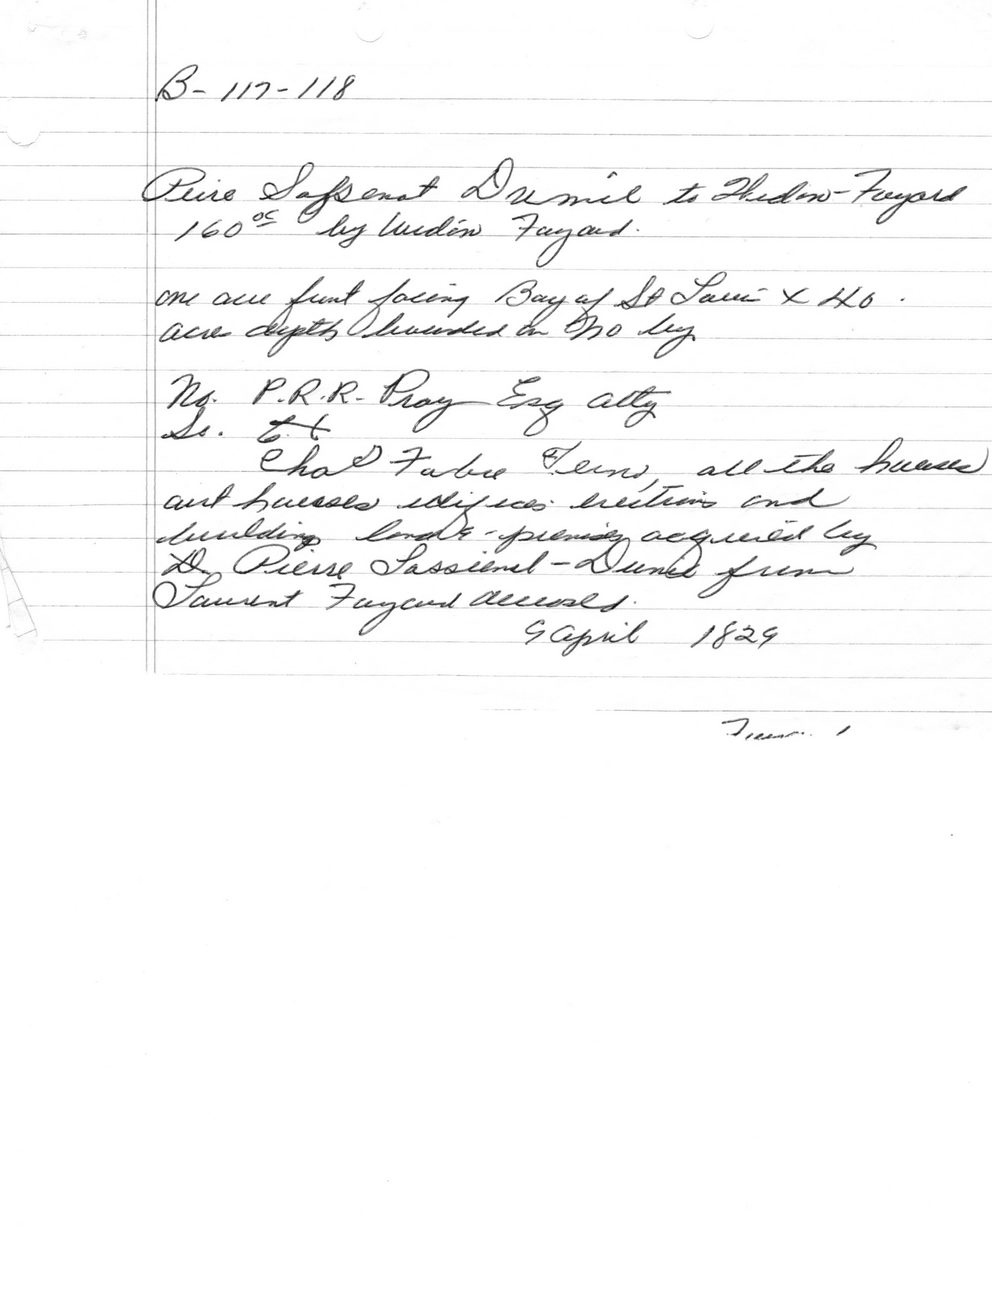 B- 117-118
Peire Saffenot Dumil to Widow-Fayard
160 00 by Widow Fayard.
one acre front facing Bay of St Louis X 40.
acres depth bounded on No by
No. P.R.R. Pray Esq atty
So.
Chas Fabre all the houses
out houses edifices erections and
building land & premises acquired by
Dr Pierre Sassienet - Dumil from
Laurent Fayard deceased.
9 April 1829